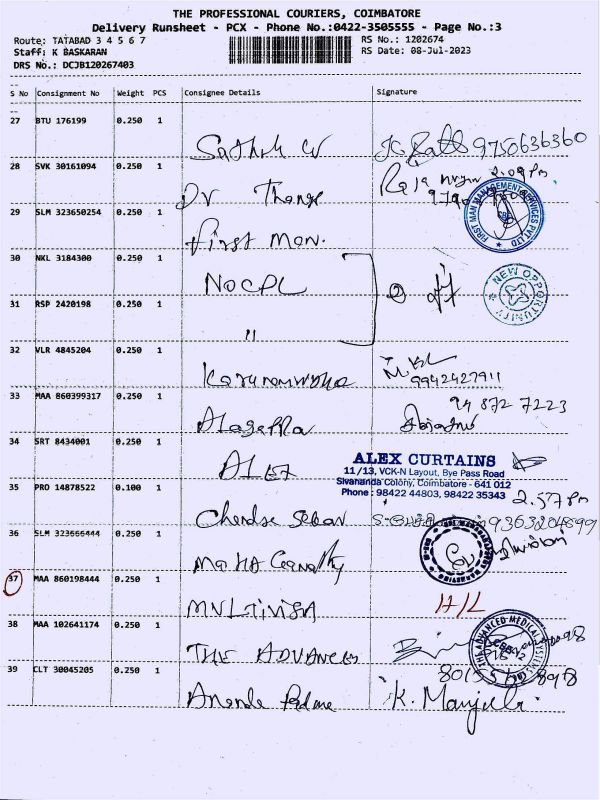 THE PROFESSIONAL COURIERS, COIMBATORE
Delivery Runsheet - PCX - Phone No.:0422-3505555 - Page No.:3
Route: TATABAD 3 4 5 6 7
RS No.: 1202674
Staff: K BASKARAN
RS Date: 08-Jul-2023
DRS No.: DCJB120267403
S No Consignment No Weight PCS Consignee Details Signature
27 BTU 176199 0.250 1
9750636360
28 SVK 30161094 0.250 1
2.09 Pm
Dr Thange
29 SLM 323650254 0.250 1
FIRST MAN MANAGEMENT SERVICES PVT LTD
First Man.
30 NKL 3184300 0.250 1
NOCPL
NEW OPPORTUNITY
31 RSP 2420198 0.250 1
"
32 VLR 4845204 0.250 1
9942427911
33 MAA 860399317 0.250 1
94 872 7223
Alagappa
34 SRT 8434001 0.250 1
ALEX
ALEX CURTAINS
11/13, VCK-N Layout, Bye Pass Road
Sivananda Colony, Coimbatore - 641 012
Phone : 98422 44803, 98422 35343
35 PRO 14878522 0.100 1
2.57 Pm
9363204899
36 SLM 323666444 0.250 1
Maha Ganapathy
37 MAA 860198444 0.250 1
MULTIVISA H/L
38 MAA 102641174 0.250 1
THE ADVANCED
ADVANCED MEDICAL SYSTEMS
39 CLT 30045205 0.250 1
K. Manjula